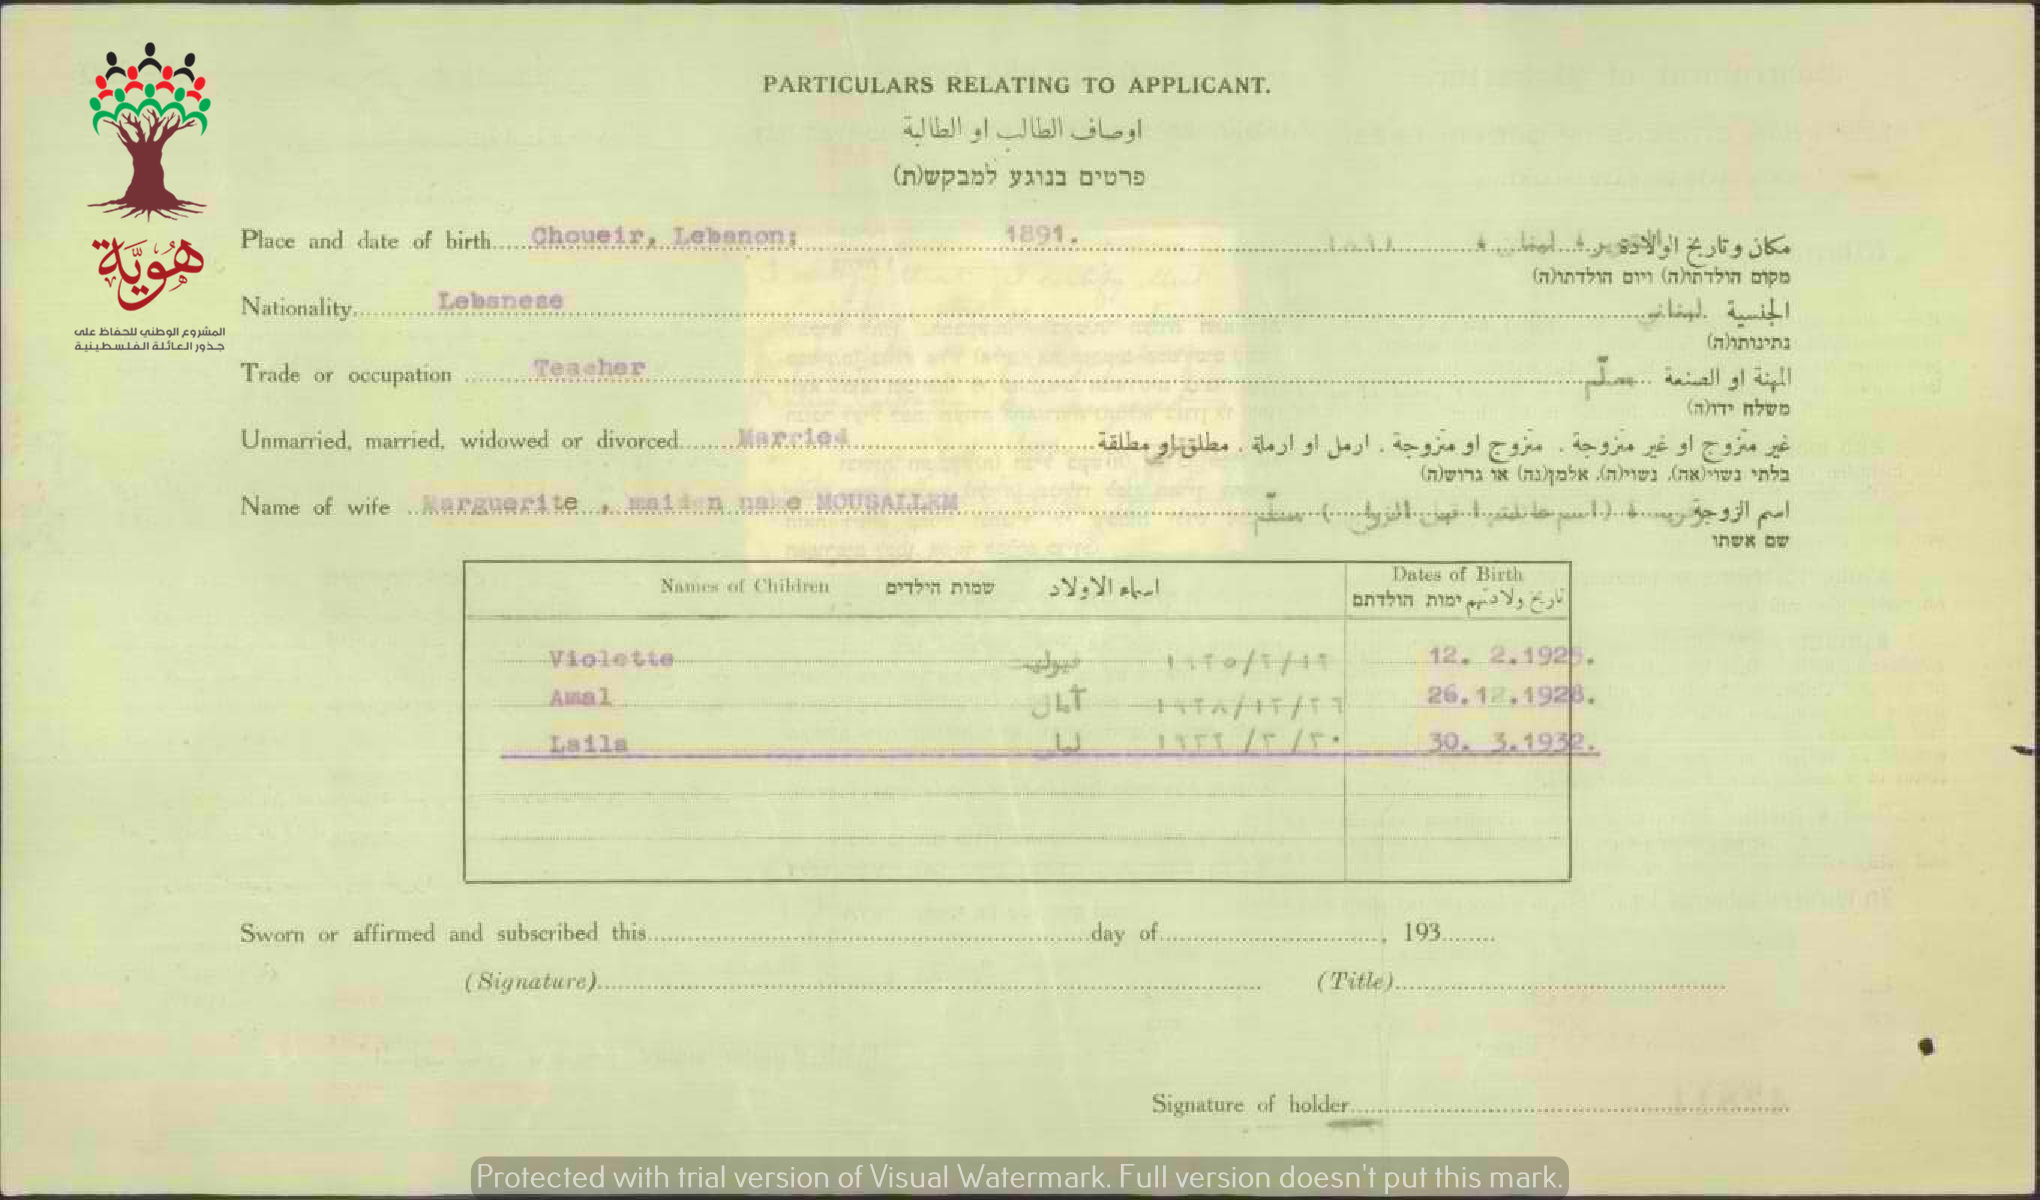 PARTICULARS RELATING TO APPLICANT.
اوصاف الطالب او الطالبة
פרטים בנוגע למבקש(ת)
هوية
المشروع الوطني للحفاظ على
جذور العائلة الفلسطينية
Place and date of birth Choueir, Lebanon; 1891. ١٨٩١ الشوير ، لبنان ، مكان وتاريخ الولادة
מקום הולדתו(ה) ויום הולדתו(ה)
Nationality Lebanese لبناني الجنسية
נתינותו(ה)
Trade or occupation Teacher معلّم المهنة او الصنعة
משלח ידו(ה)
Unmarried, married, widowed or divorced Married غير متزوج او غير متزوجة . متزوج او متزوجة . ارمل او ارملة . مطلق او مطلقة
בלתי נשוי(אה), נשוי(ה), אלמן(נה) או גרוש(ה)
Name of wife Marguerite , maiden name MOUSALLEM اسم الزوجة
שם אשתו
Names of Children שמות הילדים اسماء الاولاد Dates of Birth
تاريخ ولادتهم ימות הולדתם
Violette ١٩٢٥/٢/١٢ 12. 2.1925.
Amal آمال ١٩٢٨/١٢/٢٦ 26.12.1928.
Laila ليلى ١٩٣٢/٣/٣٠ 30. 3.1932.
Sworn or affirmed and subscribed this day of , 193
(Signature) (Title)
Signature of holder
Protected with trial version of Visual Watermark. Full version doesn't put this mark.